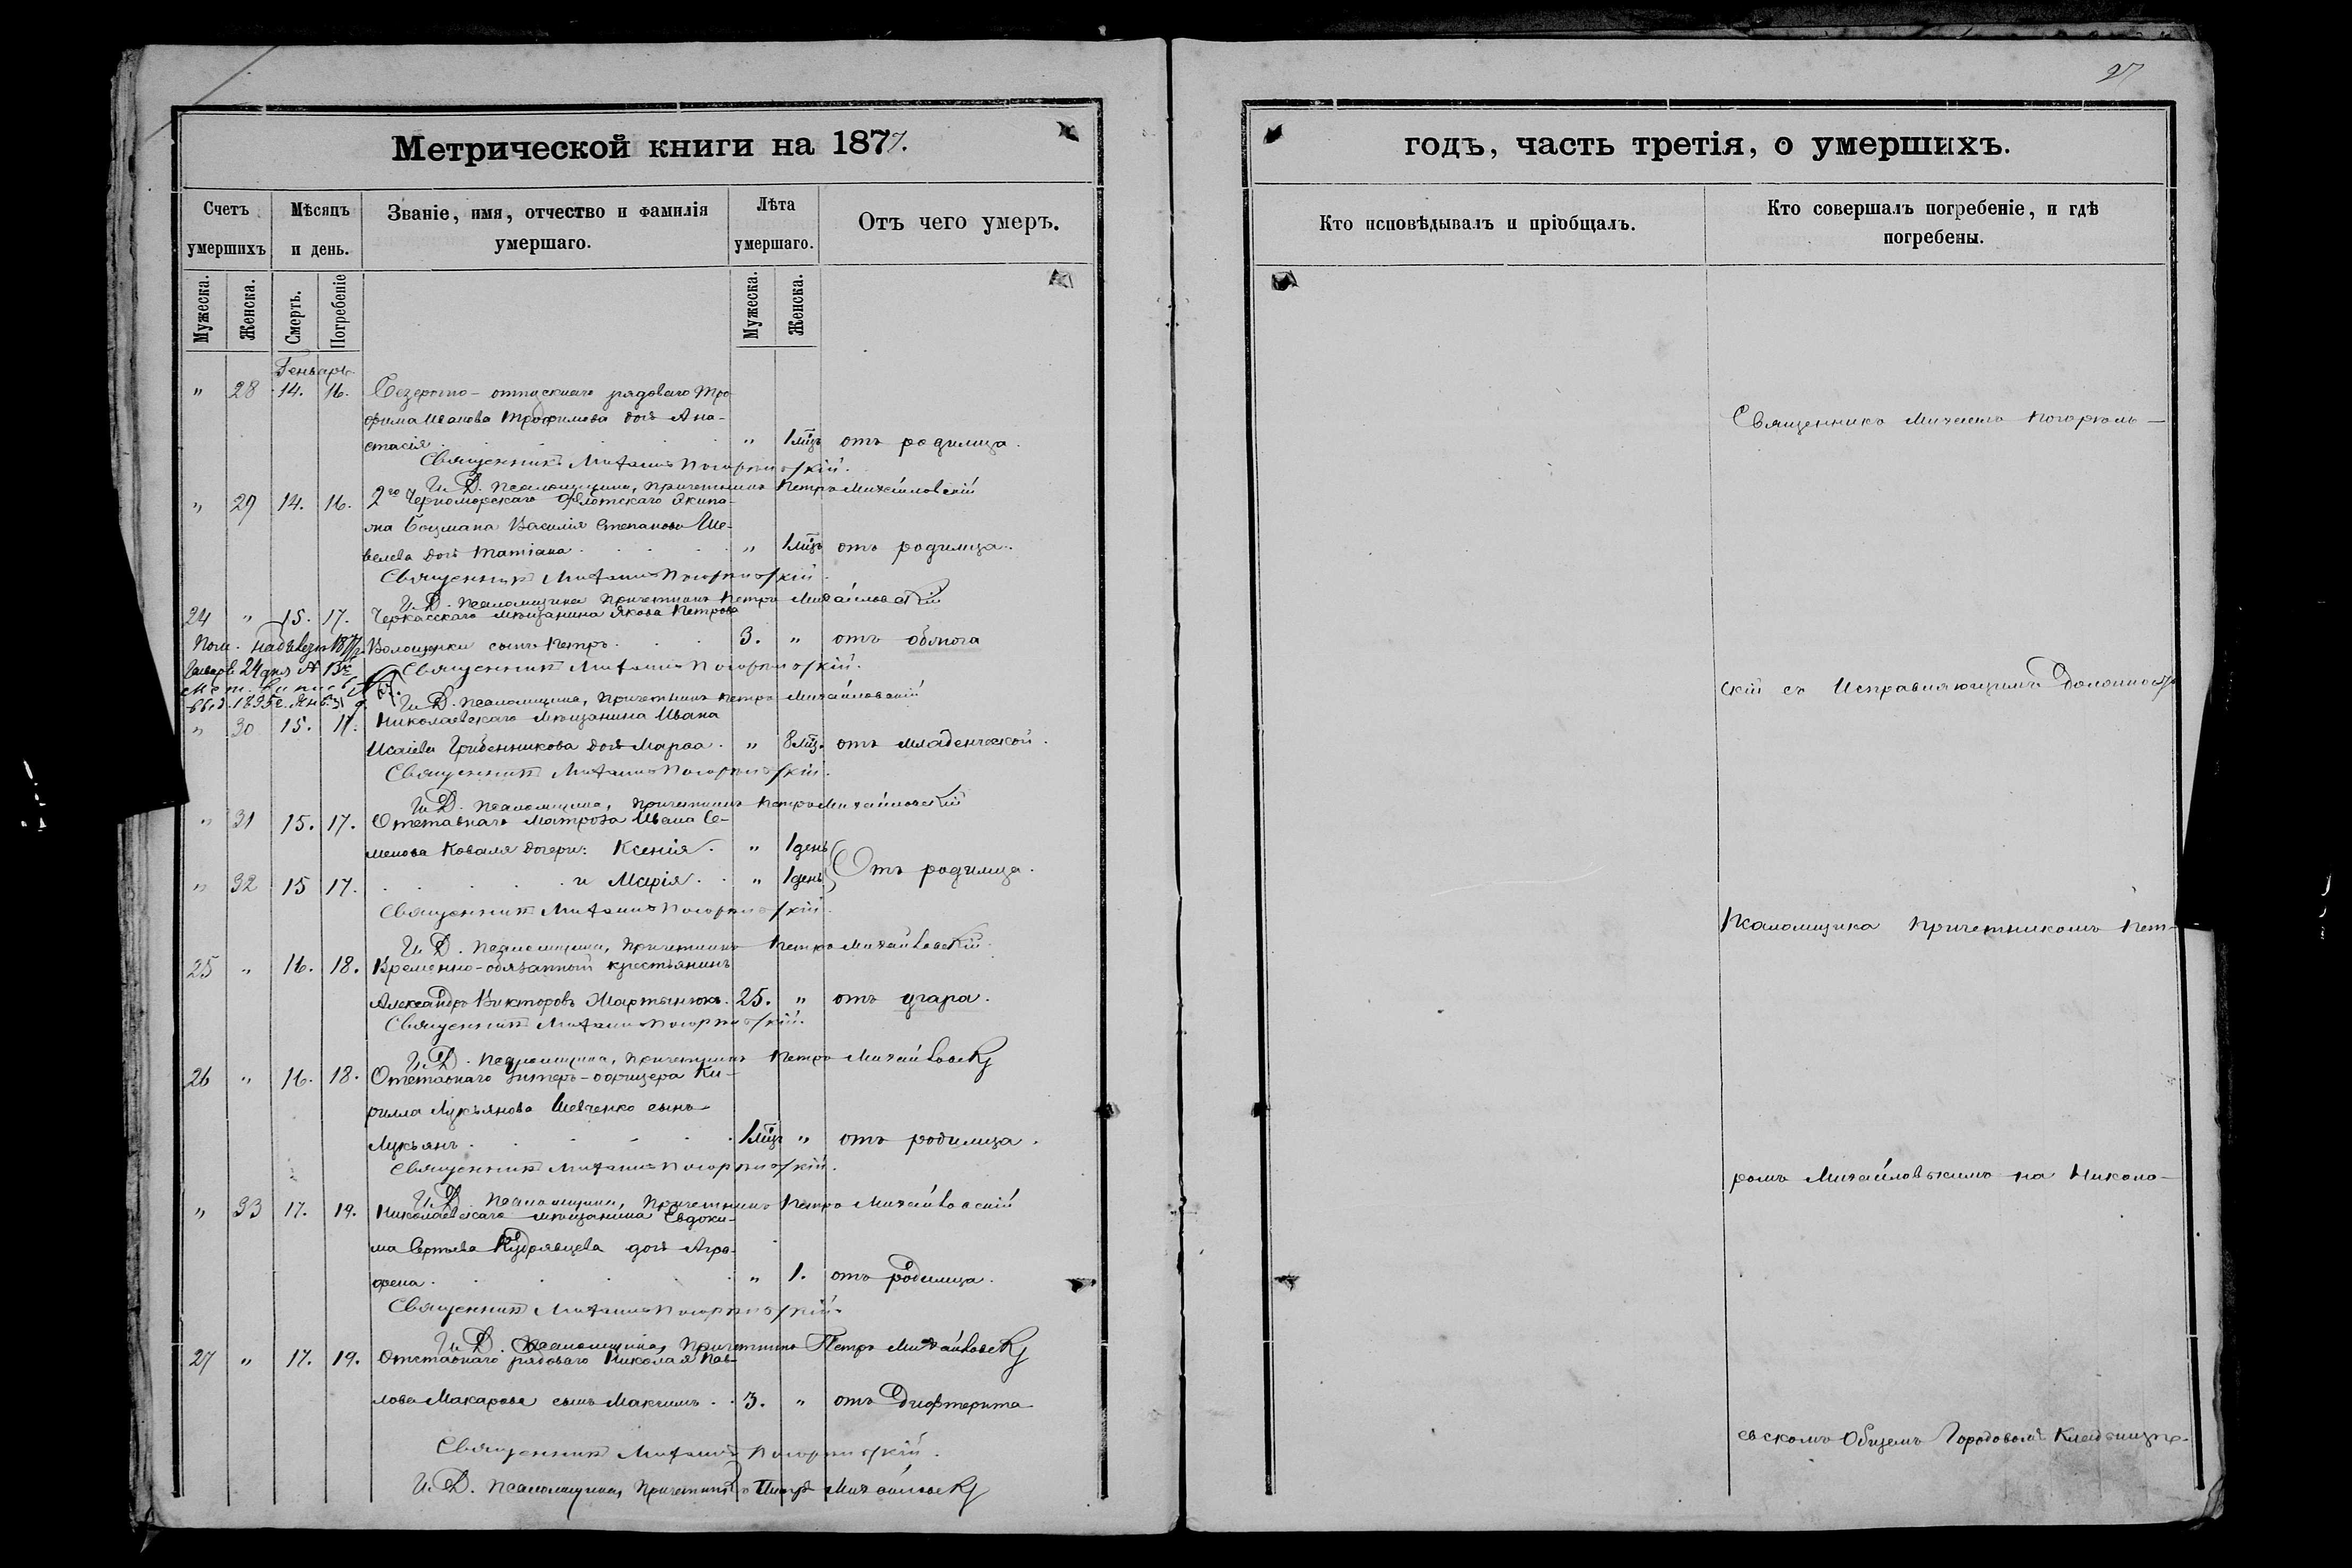 27
Метрической книги на 1877.
годъ, часть третія, о умершихъ.
Счетъ умершихъ
Мѣсяцъ и день.
Званіе, имя, отчество и фамилія умершаго.
Лѣта умершаго.
Отъ чего умеръ.
Кто исповѣдывалъ и пріобщалъ.
Кто совершалъ погребеніе, и гдѣ погребены.
Мужеска.
Женска.
Смерть.
Погребеніе
Мужеска.
Женска.
Генварь
" 28 14. 16. Безсрочно-отпускнаго рядоваго Тро-
фима Иванова Трофимова дочь Ана-
стасія " 1 мцъ отъ родимца.
Священникъ Михаилъ
И. Д. Псаломщика, Причетникъ Петръ Михайловскій
" 29 14. 16. 2го Черноморскаго флотскаго экипа-
жа Боцмана Василія Степанова Ше-
велева дочь Татіана " 1 мцъ отъ родимца.
Священникъ Михаилъ
И. Д. Псаломщика Причетникъ Петръ Михайловскій
24 " 15. 17. Черкасскаго мѣщанина Якова Петрова
Волощенки сынъ Петръ 3. " отъ обжога
Генваря 24 дня №
Священникъ Михаилъ
И. Д. Псаломщика, Причетникъ Петръ Михайловскій
" 30 15. 17. Николаевскаго мѣщанина Ивана
Исаіева Гребенникова дочь Марѳа. " 8 мц. отъ младенческой.
Священникъ Михаилъ
И. Д. Псаломщика, Причетникъ Петръ Михайловскій
" 31 15. 17. Отставнаго матроза Ивана Се-
менова Коваля дочери: Ксенія. " 1 день
" 32 15 17. и Марія. " 1 день Отъ родимца.
Священникъ Михаилъ
И. Д. Псаломщика, Причетникъ Петръ Михайловскій
25 " 16. 18. Временно-обязанный крестьянинъ
Александръ Викторовъ Мартынюкъ. 25. " отъ угара.
Священникъ Михаилъ
И. Д. Псаломщика, Причетникъ Петръ Михайловск
26 " 16. 18. Отставнаго унтеръ-офицера Ки-
рилла Лукьянова Шевченко сынъ
Лукьянъ 1 мцъ " отъ родимца.
Священникъ Михаилъ
И. Д. Псаломщика, Причетникъ Петръ Михайловскій
" 33 17. 19. Николаевскаго мѣщанина Евдоки-
ма Сергѣева Кудрявцева дочь Агра-
фена. " 1. отъ родимца.
Священникъ Михаилъ
И. Д. Псаломщика, Причетникъ Петръ Михайловск
27 " 17. 19. Отставнаго рядоваго Николая Пав-
лова Макарова сынъ Максимъ. 3. " отъ Дифтерита
Священникъ Михаилъ
И. Д. Псаломщика, Причетникъ Петръ Михайловск
Священникъ Михаилъ
скій съ Исправляющимъ Должность
Псаломщика Причетникомъ Пет-
ромъ Михайловскимъ на Никола-
евскомъ Общемъ Городовомъ Кладбищѣ.